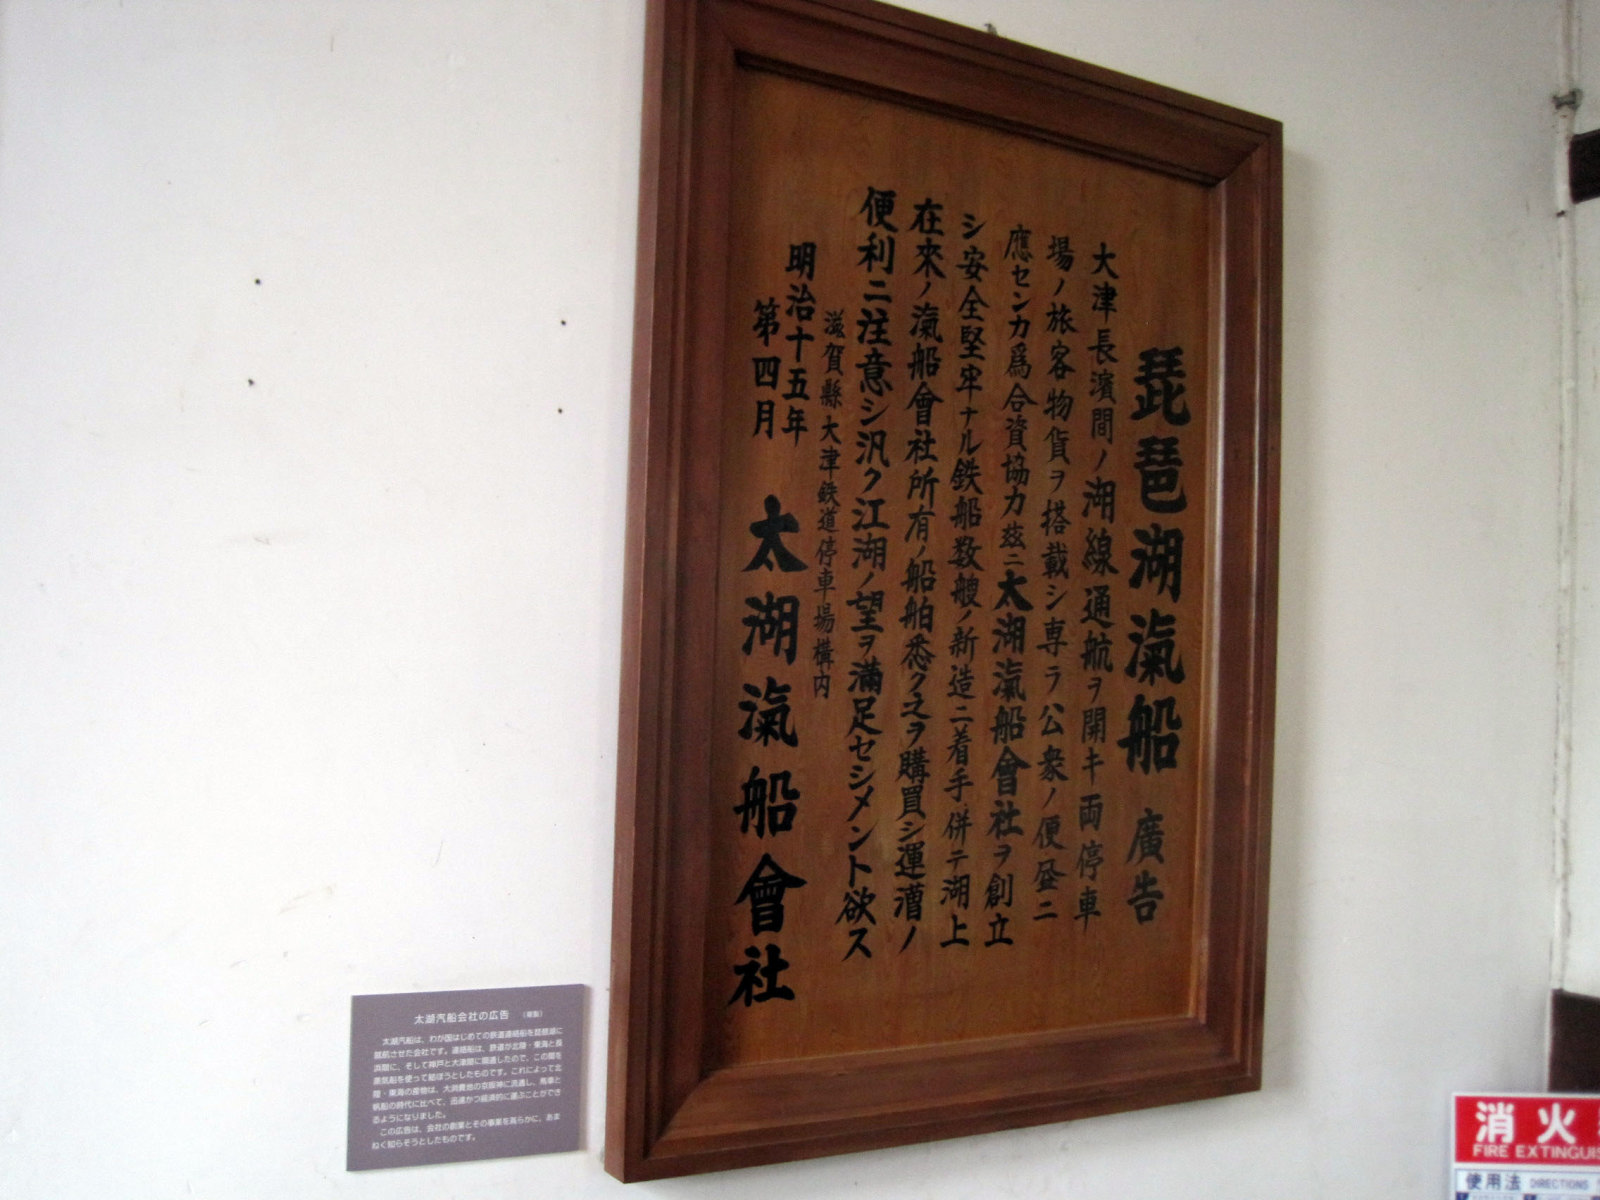 琵琶湖滊船 廣告
大津長濱間ノ湖線通航ヲ開キ両停車
場ノ旅客物貨ヲ搭載シ専ラ公衆ノ便益ニ
應センカ爲合資協力茲ニ太湖滊船會社ヲ創立
シ安全堅牢ナル鉄船数艘ノ新造ニ着手併テ湖上
在來ノ滊船會社所有ノ船舶悉ク之ヲ購買シ運漕ノ
便利ニ注意シ汎ク江湖ノ望ヲ満足セシメント欲ス
滋賀縣大津鉄道停車場構内
明治十五年
第四月
太湖滊船會社
太湖汽船会社の広告 (複製)
太湖汽船は、わが国はじめての鉄道連絡船を琵琶湖に
就航させた会社です。連絡船は、鉄道が北陸・東海と長
浜間に、そして神戸と大津間に開通したので、この間を
蒸気船を使って結ぼうとしたものです。これによって北
陸・東海の産物は、大消費地の京阪神に流通し、馬車と
帆船の時代に比べて、迅速かつ経済的に運ぶことができ
るようになりました。
この広告は、会社の創業とその事業を高らかに、あま
ねく知らそうとしたものです。
消火
FIRE EXTINGUIS
使用法 DIRECTIONS